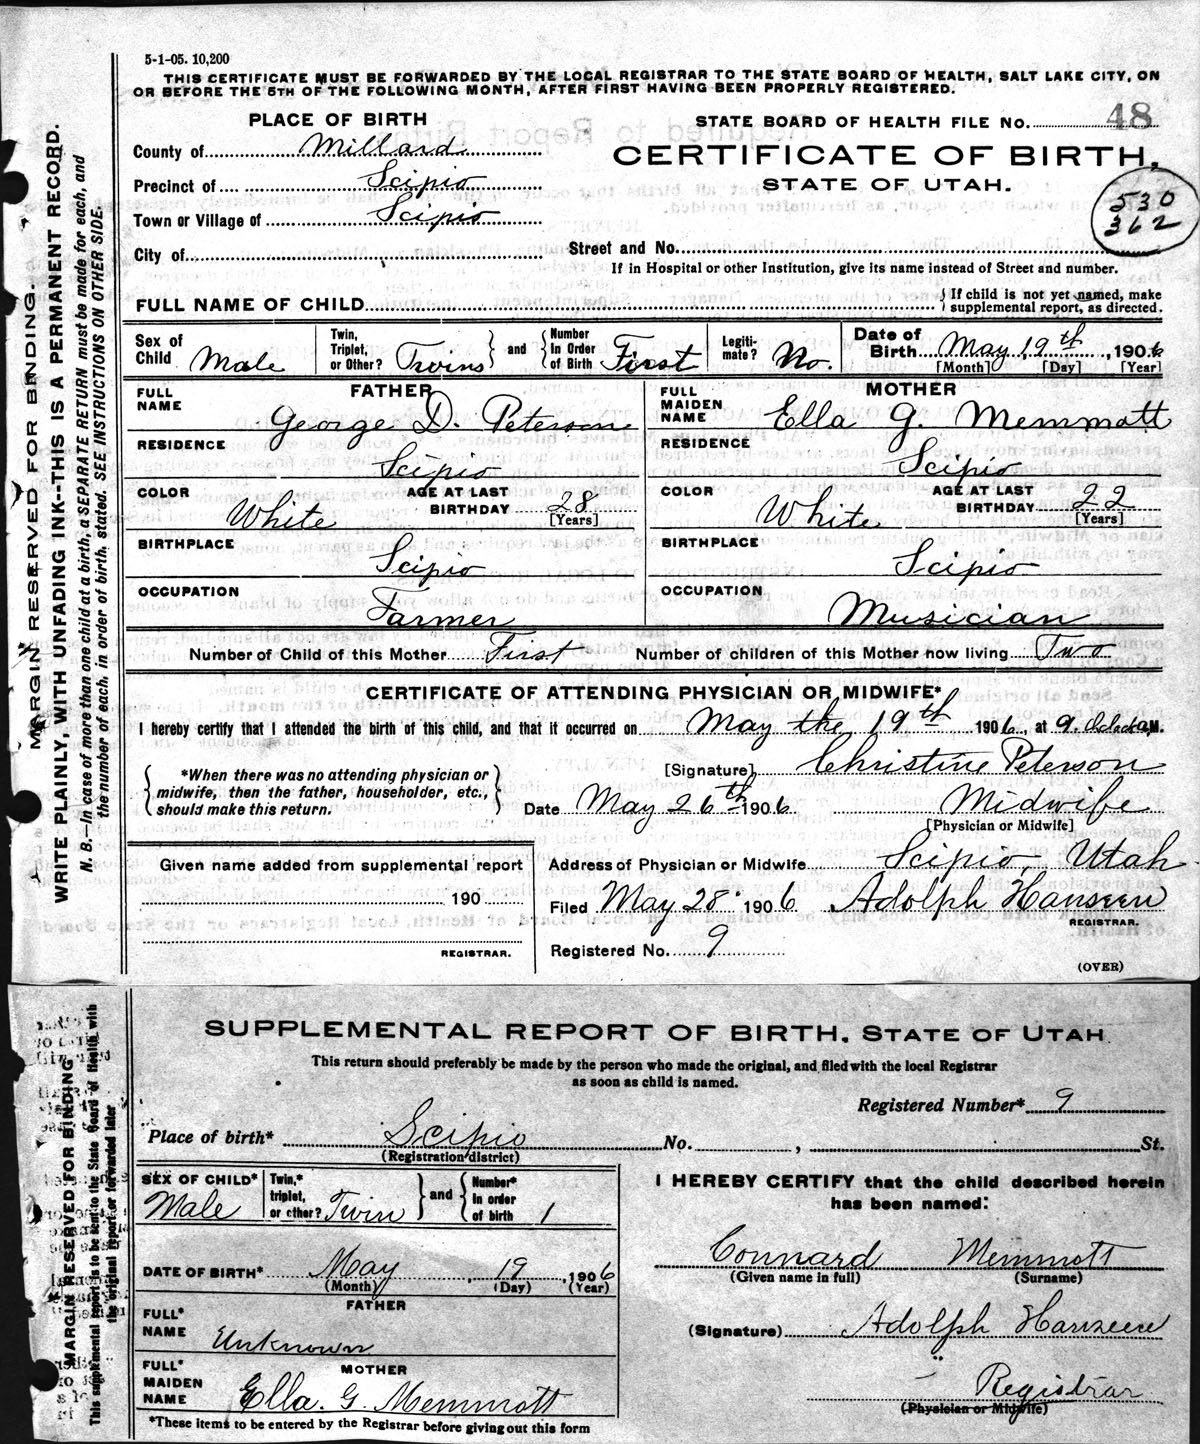 5-1-05. 10,200
THIS CERTIFICATE MUST BE FORWARDED BY THE LOCAL REGISTRAR TO THE STATE BOARD OF HEALTH, SALT LAKE CITY, ON
OR BEFORE THE 5TH OF THE FOLLOWING MONTH, AFTER FIRST HAVING BEEN PROPERLY REGISTERED.
PLACE OF BIRTH
STATE BOARD OF HEALTH FILE No. 48
County of Millard
CERTIFICATE OF BIRTH,
STATE OF UTAH.
Precinct of Scipio
Town or Village of Scipio
530
362
City of
Street and No.
If in Hospital or other Institution, give its name instead of Street and number.
FULL NAME OF CHILD
If child is not yet named, make
supplemental report, as directed.
Sex of Child Male
Twin, Triplet, or Other? Twins and Number In Order of Birth First
Legiti-mate? No.
Date of Birth May 19th, 1906
[Month] [Day] [Year]
FATHER
FULL NAME George D. Peterson
MOTHER
FULL MAIDEN NAME Ella G. Memmott
RESIDENCE Scipio
RESIDENCE Scipio
COLOR White AGE AT LAST BIRTHDAY 28 [Years]
COLOR White AGE AT LAST BIRTHDAY 22 [Years]
BIRTHPLACE Scipio
BIRTHPLACE Scipio
OCCUPATION Farmer
OCCUPATION Musician
Number of Child of this Mother First Number of children of this Mother now living Two
CERTIFICATE OF ATTENDING PHYSICIAN OR MIDWIFE*
I hereby certify that I attended the birth of this child, and that it occurred on May the 19th 1906, at 9. oclock a M.
*When there was no attending physician or
midwife, then the father, householder, etc.,
should make this return.
[Signature] Christine Peterson
Date May 26th 1906 Midwife
[Physician or Midwife]
Given name added from supplemental report
190
REGISTRAR.
Address of Physician or Midwife Scipio, Utah
Filed May 28 1906 Adolph Hanseen
REGISTRAR.
Registered No. 9
(OVER)
MARGIN RESERVED FOR BINDING.
WRITE PLAINLY, WITH UNFADING INK--THIS IS A PERMANENT RECORD.
N. B.—In case of more than one child at a birth, a SEPARATE RETURN must be made for each, and
the number of each, in order of birth, stated. SEE INSTRUCTIONS ON OTHER SIDE.
SUPPLEMENTAL REPORT OF BIRTH, STATE OF UTAH
This return should preferably be made by the person who made the original, and filed with the local Registrar
as soon as child is named.
Registered Number* 9
Place of birth* Scipio No. , St.
(Registration district)
SEX OF CHILD* Male
Twin,* triplet, or other? Twin and Number* In order of birth 1
DATE OF BIRTH* May, 19, 1906
(Month) (Day) (Year)
FATHER
FULL* NAME Unknown
MOTHER
FULL* MAIDEN NAME Ella. G. Memmott
*These items to be entered by the Registrar before giving out this form
I HEREBY CERTIFY that the child described herein
has been named:
Connard Memmott
(Given name in full) (Surname)
(Signature) Adolph Hanseen
Registrar
(Physician or Midwife)
MARGIN RESERVED FOR BINDING
This supplemental report is to be sent to the State Board of Health with
the original report or forwarded later